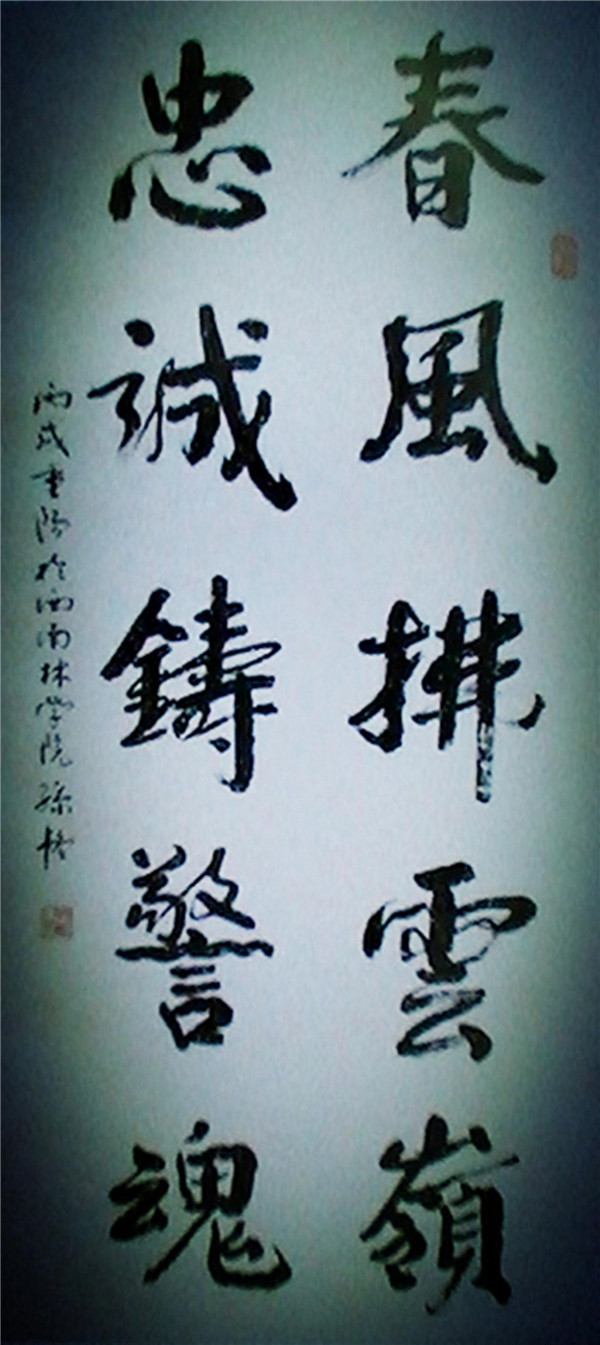 春風拂雲嶺
忠誠鑄警魂
丙戌重陽於西南林學院孫